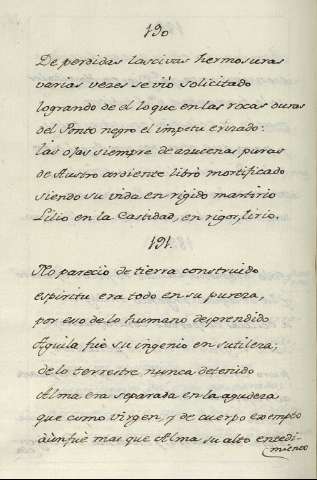 190
De perdidas lascivas hermosuras
varias vezes se vió solicitado
logrando de el lo que en las rocas duras
del Ponto negro el impetu erizado:
las ojas siempre de azucenas puras
de Austro ardiente libró mortificado
siendo su vida en rigido martirio
Lilio en la Castidad, en rigor, lirio.
191.
No pareció de tierra construido
espiritu era todo en su pureza,
por eso de lo humano desprendido
Aguila fue su ingenio en sutileza;
de lo terrestre nunca detenido
Alma era separada en la agudeza
que como virgen, y de cuerpo exempto
aùn fuè mas que Alma su alto entedi-
miento